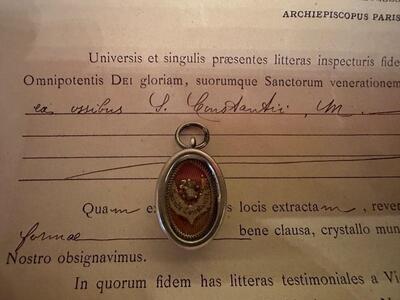 ARCHIEPISCOPUS PARIS
Universis et singulis præsentes litteras inspecturis fide
Omnipotentis DEI gloriam, suorumque Sanctorum venerationem
ex ossibus S. Constantii, M.
Quam e locis extractam, rever
formae bene clausa, crystallo mun
Nostro obsignavimus.
In quorum fidem has litteras testimoniales a Vi